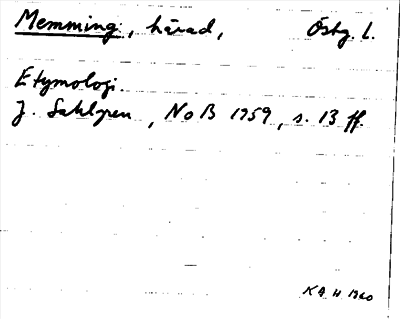 Memming, härad, Östg. l.
Etymologi.
J. Sahlgren, NoB 1959, s. 13 ff.
KA H 1960